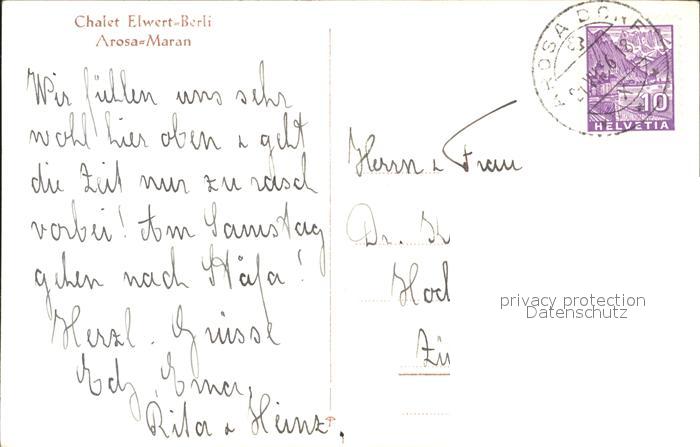 Chalet Elwert-Berli
Arosa-Maran
Wir fühlen uns sehr
wohl hier oben & geht
die Zeit nur zu rasch
vorbei! Am Samstag
gehen nach Stäfa!
Herzl. Grüsse
Edy, Erna,
Rita & Heinz.
AROSA DORF
10
HELVETIA
Herrn & Frau
Dr.
privacy protection
Datenschutz